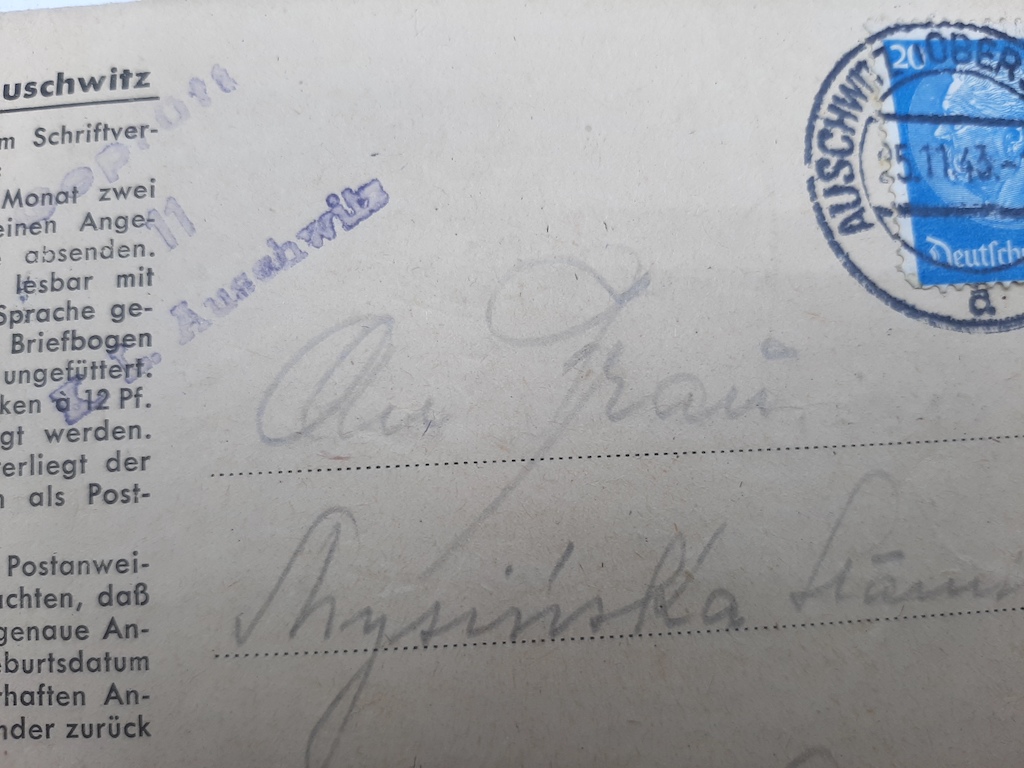 uschwitz
m Schriftver-
Monat zwei
einen Ange-
absenden.
lesbar mit
Sprache ge-
Briefbogen
ungefüttert.
ken à 12 Pf.
gt werden.
erliegt der
n als Post-
Postanwei-
achten, daß
genaue An-
eburtsdatum
rhaften An-
nder zurück
11
K. L. Auschwitz
AUSCHWITZ OBERS
25.11.43.-
a
20
Deutsche
An Frau